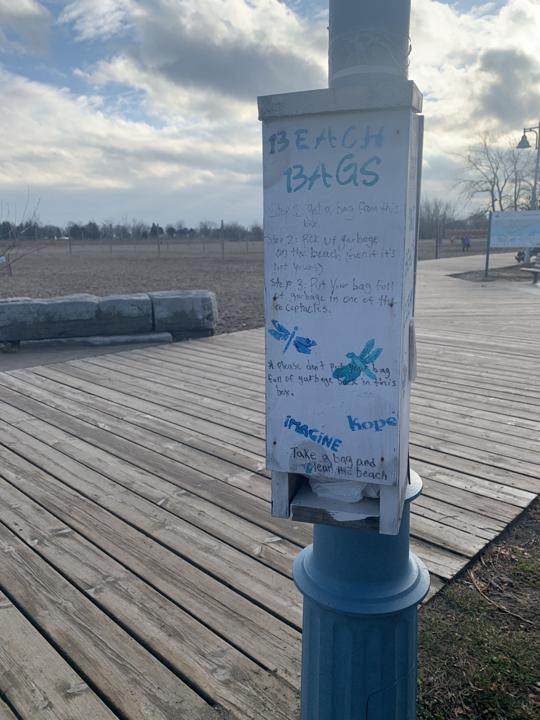 BEACH
BAGS
Step 1: get a bag from this
box.
Step 2: Pick up garbage
on the beach (even if it's
not yours)
Step 3: Put your bag full
of garbage in one of the
receptacles.
* Please don't put your bag
full of garbage back in this
box.
IMAGINE
hope
Take a bag and
clean the beach